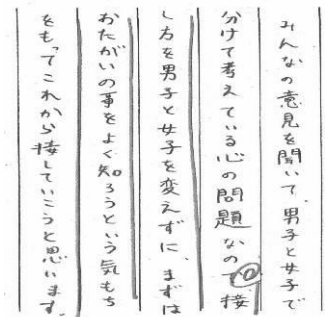 みんなの意見を聞いて、男子と女子で
分けて考えている心の問題なので接
し方を男子と女子を変えずに、まずは
おたがいの事をよく知ろうという気もち
をもってこれから接していこうと思います。